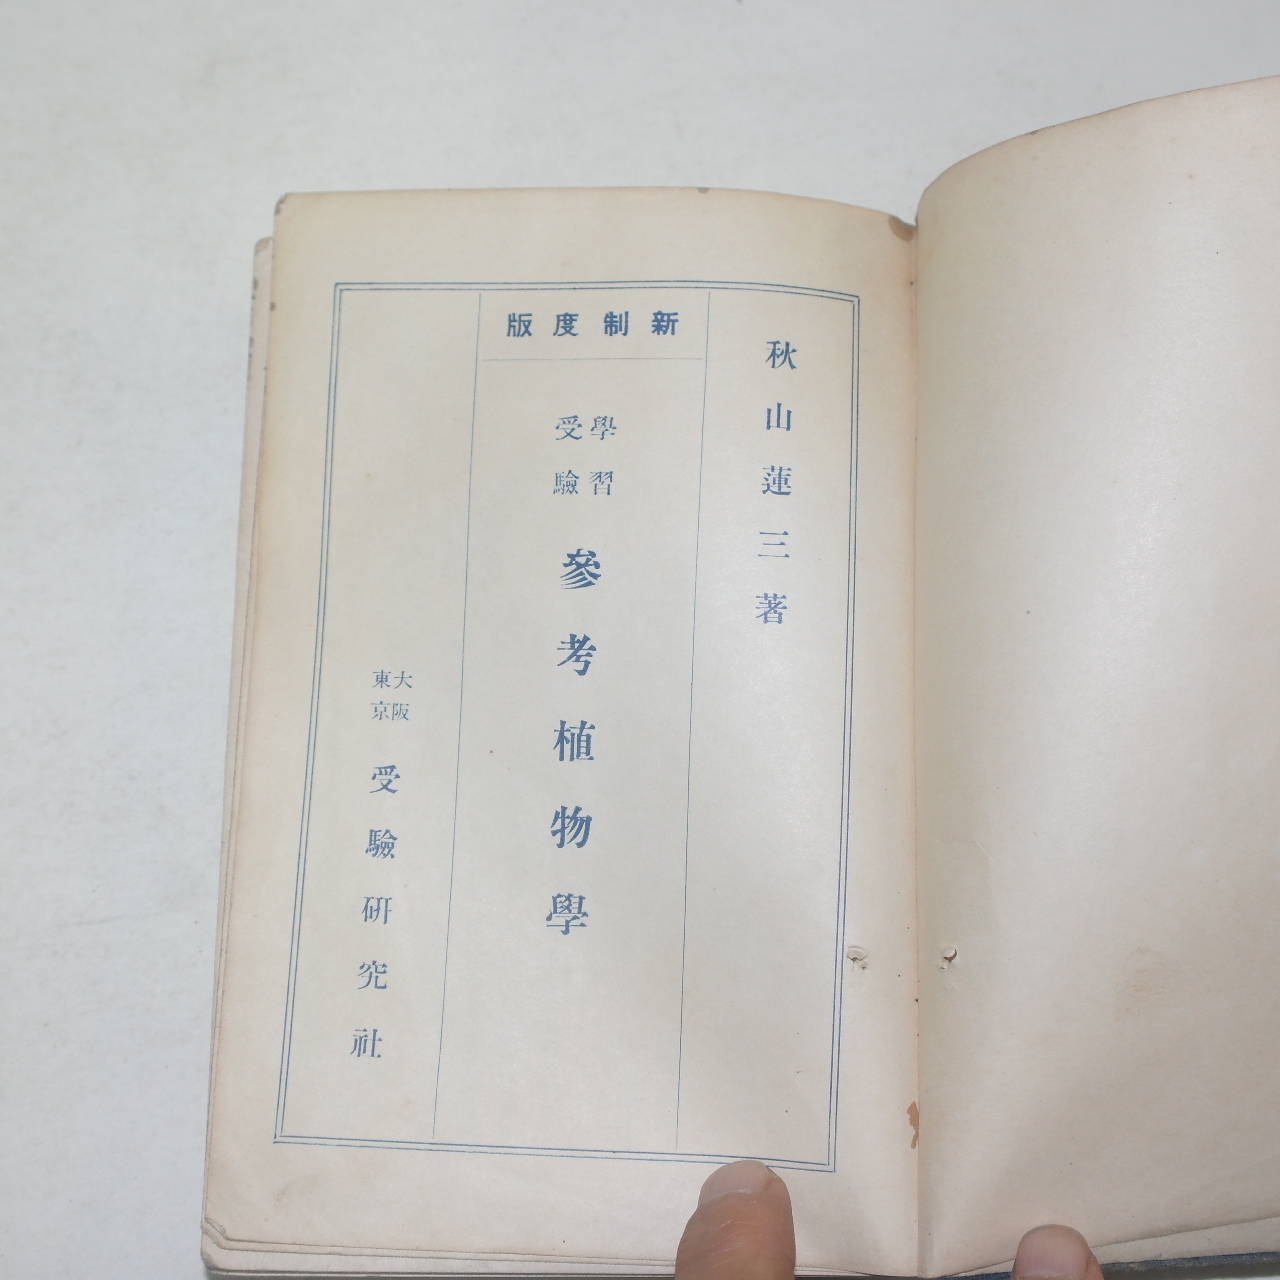 秋山蓮三著
新制度版
學習
受驗
參考植物學
大阪
東京
受驗研究社